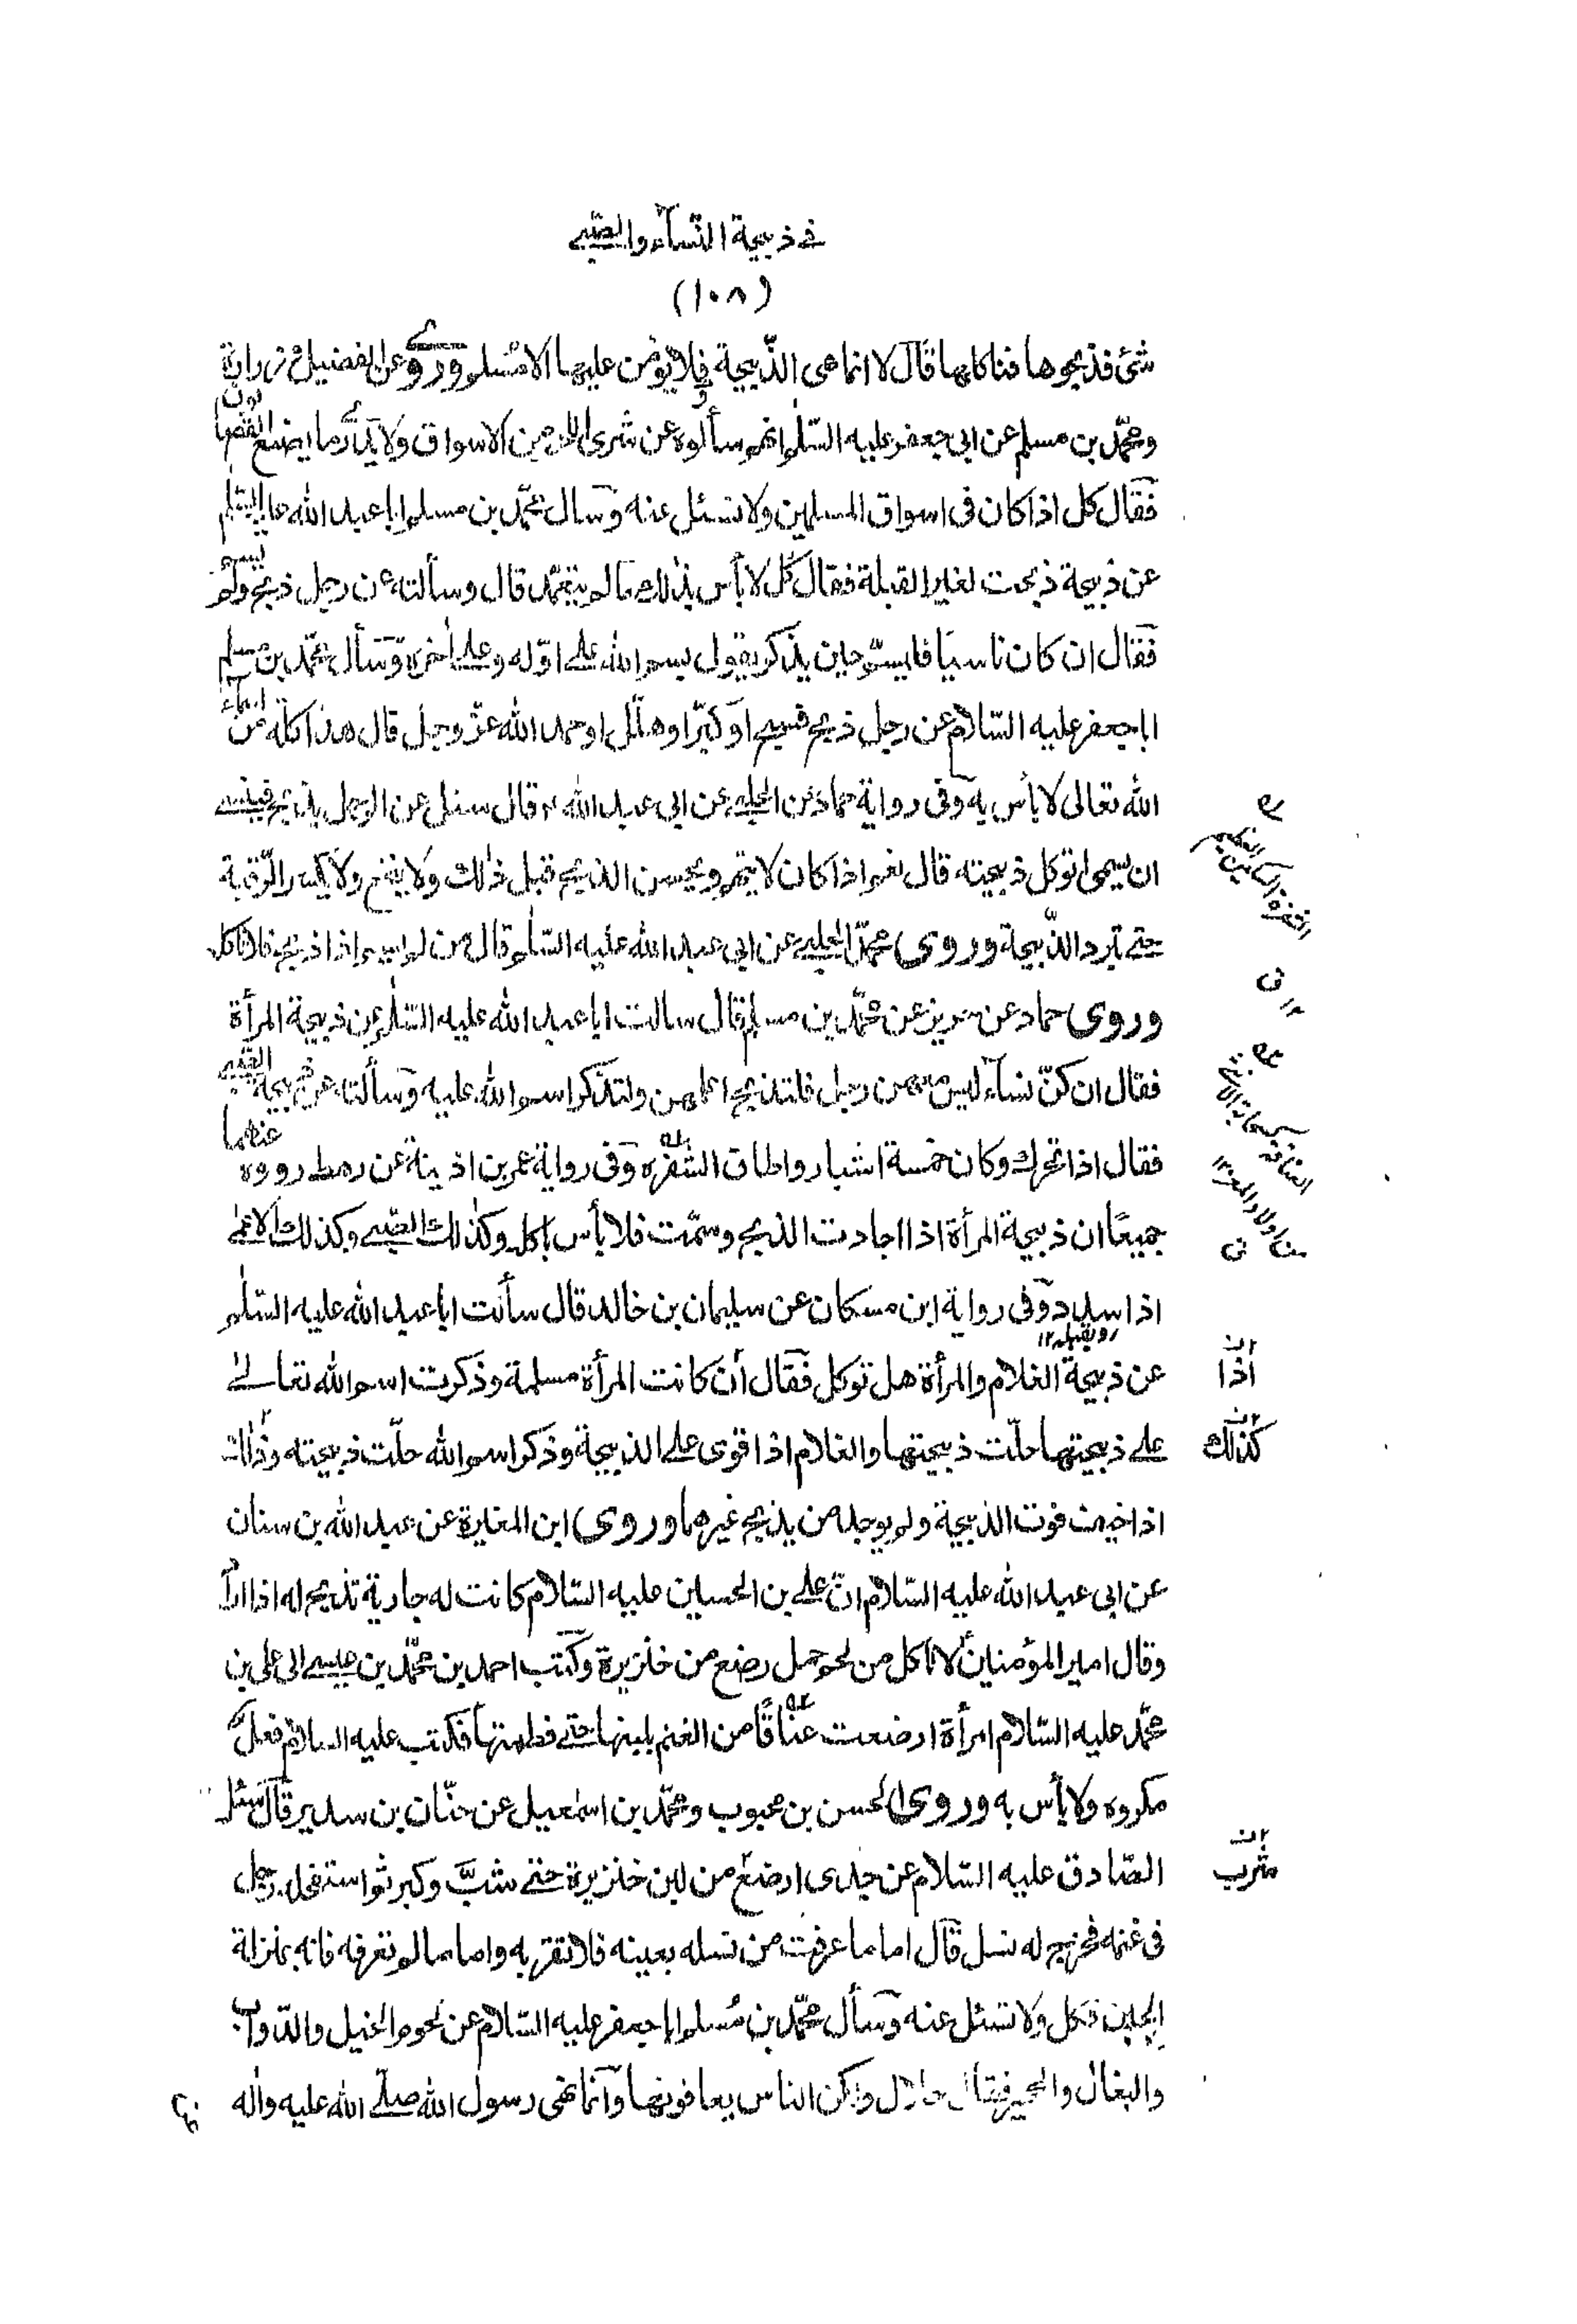 في ذبيحة النسآء والصّبي
(١٠٨)
شئ فذبحوها فناكلها قال لا انما هى الذّبيحة فلا يؤمن عليها الا مسلم وروى عن الفضيل و زرارة
ومحمّد بن مسلم عن ابى جعفر عليه السّلم انهم سألوه عن شرى اللحم من الاسواق ولا يدرى ما يصنع القصابون
فقال كل اذا كان فى اسواق المسلمين ولا تسئل عنه وسال محمّد بن مسلم ابا عبد الله عليه السّلم
عن ذبيحة ذبحت لغير القبلة فقال كل لا بأس بذلك ما لم يتعمّد قال وسألته عن رجل ذبح ولم يسم
فقال ان كان ناسيا فليسمّ حين يذكر يقول بسم الله على اوّله وعلى اخره وسأل محمّد بن مسلم
ابا جعفر عليه السّلام عن رجل ذبح فسبح او كبّر او هلّل او حمد الله عزّ وجلّ قال هذا كله من اسمآء
الله تعالى لا بأس به وفى رواية حماد عن الحلبي عن ابى عبد الله ؑ قال سئل عن الرجل يذبح فينسى
ان يسمى اتوكل ذبيحته قال نعم اذا كان لا يتهم ويحسن الذبح قبل ذلك ولا ينخع ولا يكسر الرّقبة
حتى تبرد الذّبيحة وروى محمّد الحلبي عن ابى عبد الله عليه السّلم قال من لم يسم اذا ذبح فلا تاكل
وروى حماد عن حريز عن محمّد بن مسلم قال سالت ابا عبد الله عليه السّلم عن ذبيحة المرأة
فقال ان كنّ نسآء ليس معهن رجل فلتذبح اعلمهن ولتذكر اسم الله عليه وسألته عن ذبيحة الصّبي
فقال اذا تحرك وكان خمسة اشبار واطاق الشّفرة وفى رواية عمر بن اذينة عن رهط رووه عنهما
جميعًا ان ذبيحة المرأة اذا اجادت الذبح وسمّت فلا بأس باكله وكذلك الصّبي وكذلك الاعمى
اذا سدد وفى رواية ابن مسكان عن سليمان بن خالد قال سألت ابا عبد الله عليه السّلم
عن ذبيحة الغلام والمرأة هل توكل فقال اذا كانت المرأة مسلمة وذكرت اسم الله تعالى
على ذبيحتها حلّت ذبيحتها والغلام اذا قوى على الذبيحة وذكر اسم الله حلّت ذبيحته وذلك
اذا خيف فوت الذبيحة ولم يوجد من يذبح غيرهما وروى ابن المغيرة عن عبد الله بن سنان
عن ابى عبد الله عليه السّلام انّ على بن الحسين عليه السّلام كانت له جارية تذبح له اذا اراد
وقال امير المؤمنين لا تاكل من لحم حمل رضع من خنزيرة وكتب احمد بن محمّد بن عيسى الى على بن
محمّد عليه السّلام امرأة ارضعت عناقًا من الغنم بلبنها حتى فطمتها فكتب عليه السلام فعل
مكروه ولا بأس به وروى الحسن بن محبوب ومحمّد بن اسمٰعيل عن حنّان بن سدير قال سئل
الصّادق عليه السّلام عن جدى ارضع من لبن خنزيرة حتى شبّ وكبر ثم استفحله رجل
فى غنمه فخرج له نسل قال اما ما عرفت من نسله بعينه فلا تقربه واما ما لم تعرفه فانه بمنزلة
الجبن فكل ولا تسئل عنه وسأل محمّد بن مسلم ابا جعفر عليه السّلام عن لحوم الخيل والدّواب
والبغال والحمير فقال حلال ولكن الناس يعافونها وانما نهى رسول الله صلّى الله عليه واله
اذا
كذلك
شرب